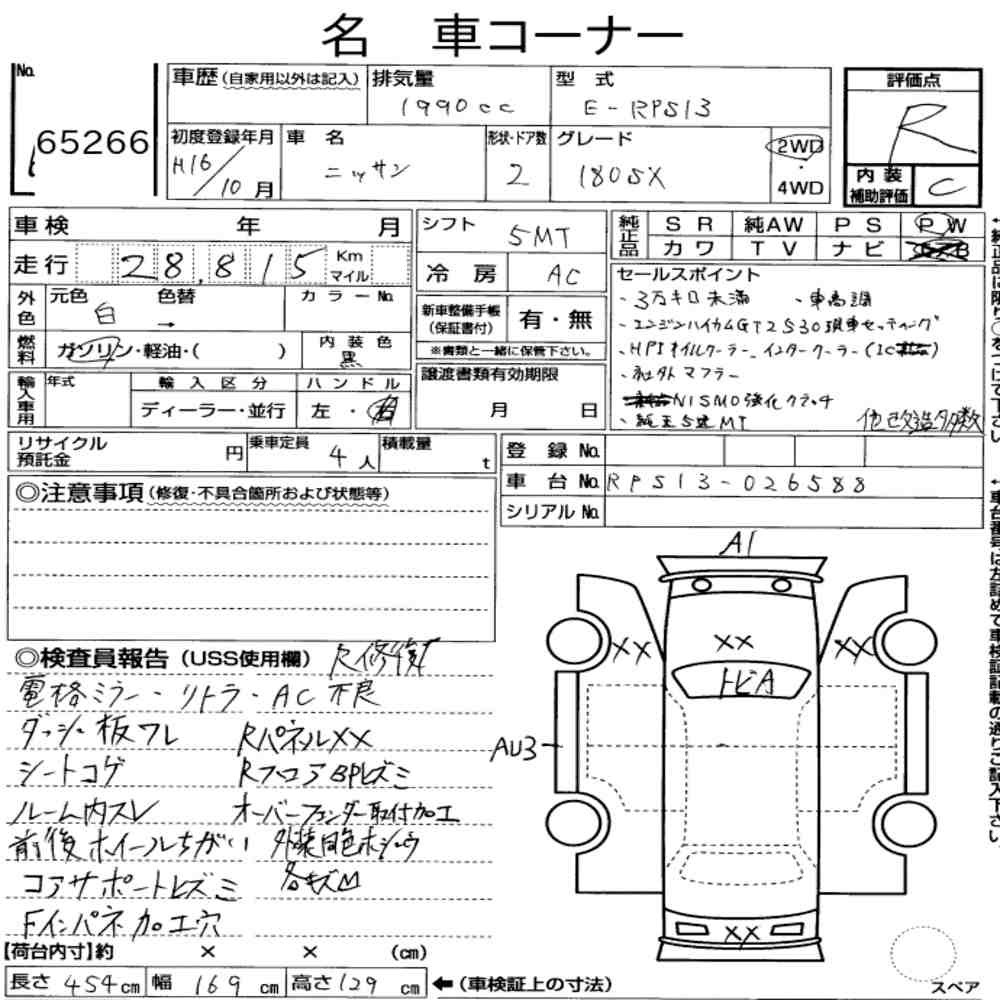 名 車コーナー
No. 65266
車歴 (自家用以外は記入)
排気量 1990cc
型式 E-RPS13
評価点 R
初度登録年月 H16/10月
車名 ニッサン
形状・ドア数 2
グレード 180SX
2WD・4WD
内装補助評価 C
車検 年 月
シフト 5MT
純正品 SR 純AW PS PW
カワ TV ナビ
走行 28,815 Km マイル
冷房 AC
セールスポイント
・3万キロ未満 ・車高調
・エンジンハイカムGT2530現車セッティング
・HPIオイルクーラー、インタークーラー(IC
・社外マフラー
NISMO強化クラッチ
・純正5速MT 他改造多数
外色 元色 白 色替 → カラーNo.
新車整備手帳(保証書付) 有・無
※書類と一緒に保管下さい。
燃料 ガソリン・軽油・( )
内装色 黒
輸入車用 年式 輸入区分 ハンドル
ディーラー・並行 左・右
譲渡書類有効期限
月 日
リサイクル預託金 円
乗車定員 4人
積載量 t
登録No.
車台No. RPS13-026588
シリアルNo.
◎注意事項 (修復・不具合箇所および状態等)
◎検査員報告 (USS使用欄) R修復
電格ミラー・リトラ・AC不良
ダッシュ板ワレ RパネルXX
シートコゲ RフロアBPレズミ
ルーム内スレ オーバーフェンダー取付加工
前後ホイールちがい 外装同色ホシュウ
コアサポートレズミ 各キズM
Fインパネ加工穴
A1
XX XX XX
トビA
AU3
XX
スペア
【荷台内寸】約 × × (cm)
長さ 454cm 幅 169cm 高さ 129cm ←(車検証上の寸法)
←純正品に限り○をつけて下さい。
←車台番号は左詰めで車検証記載の通りご記入下さい。